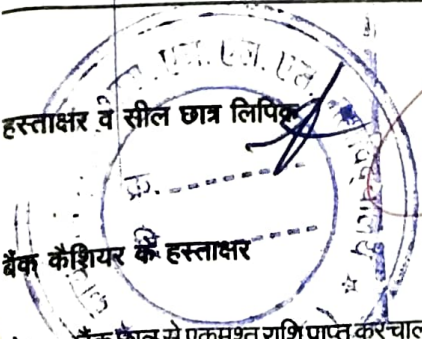 एम. एल. एल.
हस्ताक्षर व सील छात्र लिपिक
क्र. ------------
बैंक कैशियर के हस्ताक्षर
बैंक छात्र से एकमुश्त राशि प्राप्त कर चाल